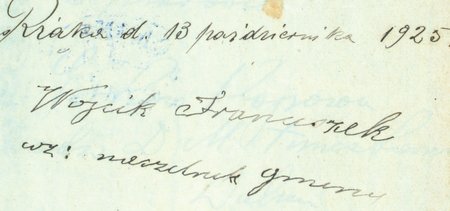 Rząka d. 13 października 1925.
Wojcik Franciszek
wz: naczelnik gminy